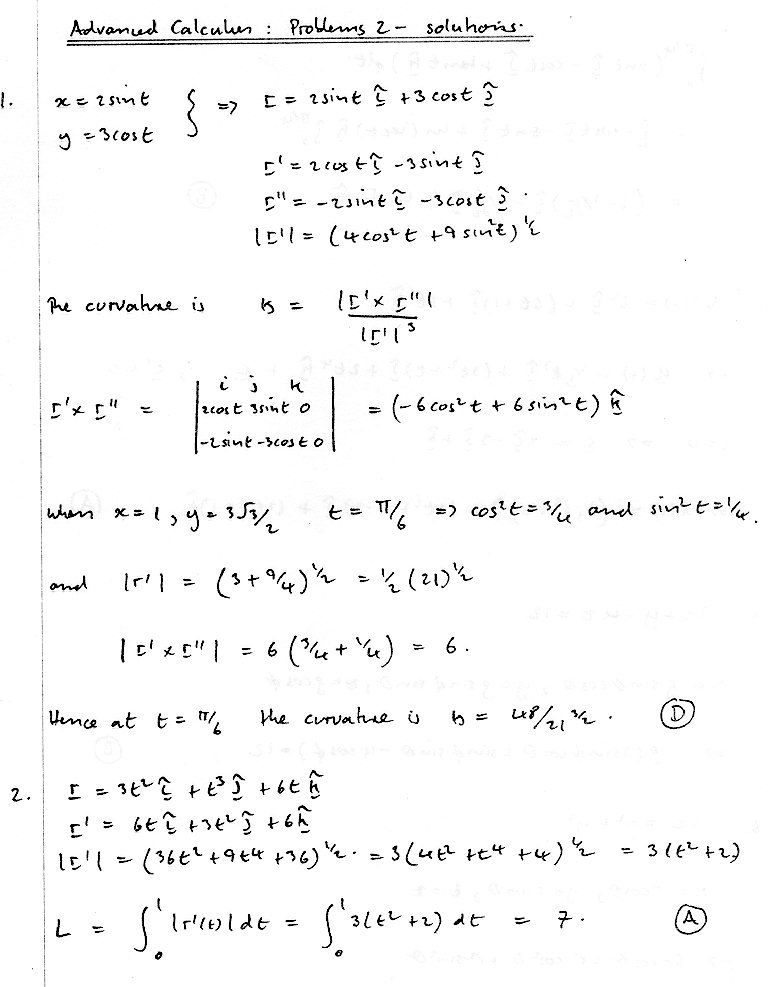 Advanced Calculus : Problems 2 - solutions.
1. x = 2sint } => r = 2sint î + 3cost ĵ
y = 3cost
r' = 2cost î - 3sint ĵ
r'' = -2sint î - 3cost ĵ .
|r'| = (4cos²t + 9sin²t)^½
The curvature is κ = |r' × r''| / |r'|³
r' × r'' = | i j k | 2cost 3sint 0 | -2sint -3cost 0 | = (-6cos²t + 6sin²t) k̂
When x = 1, y = 3√3/2 t = π/6 => cos²t = 3/4 and sin²t = 1/4.
and |r'| = (3 + 9/4)^½ = ½ (21)^½
|r' × r''| = 6 (3/4 + 1/4) = 6.
Hence at t = π/6 the curvature is κ = 48/21^3/2 . (D)
2. r = 3t² î + t³ ĵ + 6t k̂
r' = 6t î + 3t² ĵ + 6 k̂
|r'| = (36t² + 9t⁴ + 36)^½ . = 3(4t² + t⁴ + 4)^½ = 3(t² + 2)
L = ∫₀¹ |r'(t)| dt = ∫₀¹ 3(t² + 2) dt = 7 . (A)